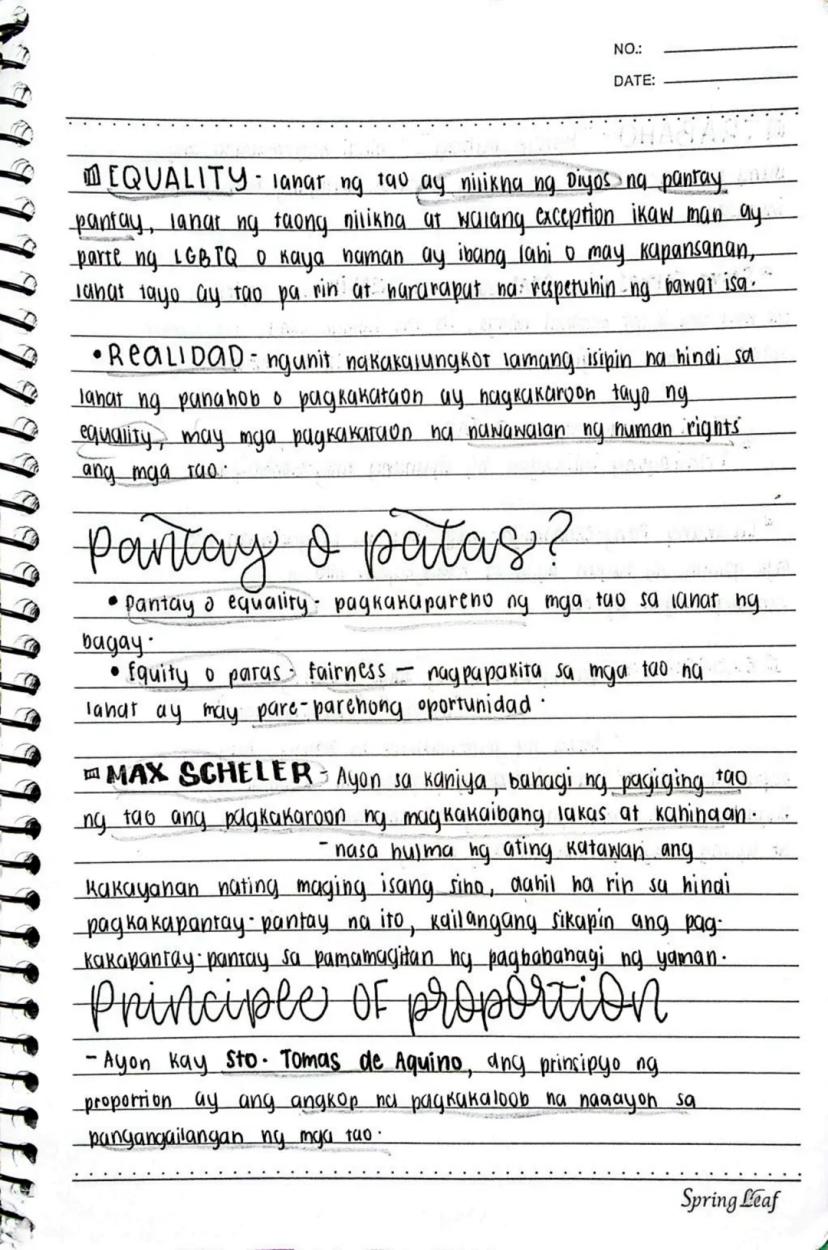 NO.:
DATE:
EQUALITY - lahat ng tao ay nilikha ng Diyos na pantay
pantay, lahat ng taong nilikha at walang exception ikaw man ay
parte ng LGBTQ o kaya naman ay ibang lahi o may kapansanan,
lahat tayo ay tao pa rin at nararapat na rispetuhin ng bawat isa.
• REALIDAD - ngunit nakakalungkot lamang isipin na hindi sa
lahat ng panahob o pagkakataon ay nagkakaroon tayo ng
equality, may mga pagkakataon na nawawalan ng human rights
ang mga tao.
Pantay o patas?
• Pantay o equality - pagkakapareho ng mga tao sa lahat ng
bagay.
• Equity o patas - fairness — nagpapakita sa mga tao na
lahat ay may pare-parehong oportunidad.
MAX SCHELER - Ayon sa kaniya, bahagi ng pagiging tao
ng tao ang pagkakaroon ng magkakaibang lakas at kahinaan.
- nasa hulma ng ating katawan ang
kakayahan nating maging isang sino, dahil na rin sa hindi
pagkakapantay-pantay na ito, kailangang sikapin ang pag-
kakapantay-pantay sa pamamagitan ng pagbabahagi ng yaman.
Principle OF proportion
- Ayon kay Sto. Tomas de Aquino, ang prinsipyo ng
proportion ay ang angkop na pagkakaloob na naaayon sa
pangangailangan ng mga tao.
Spring Leaf